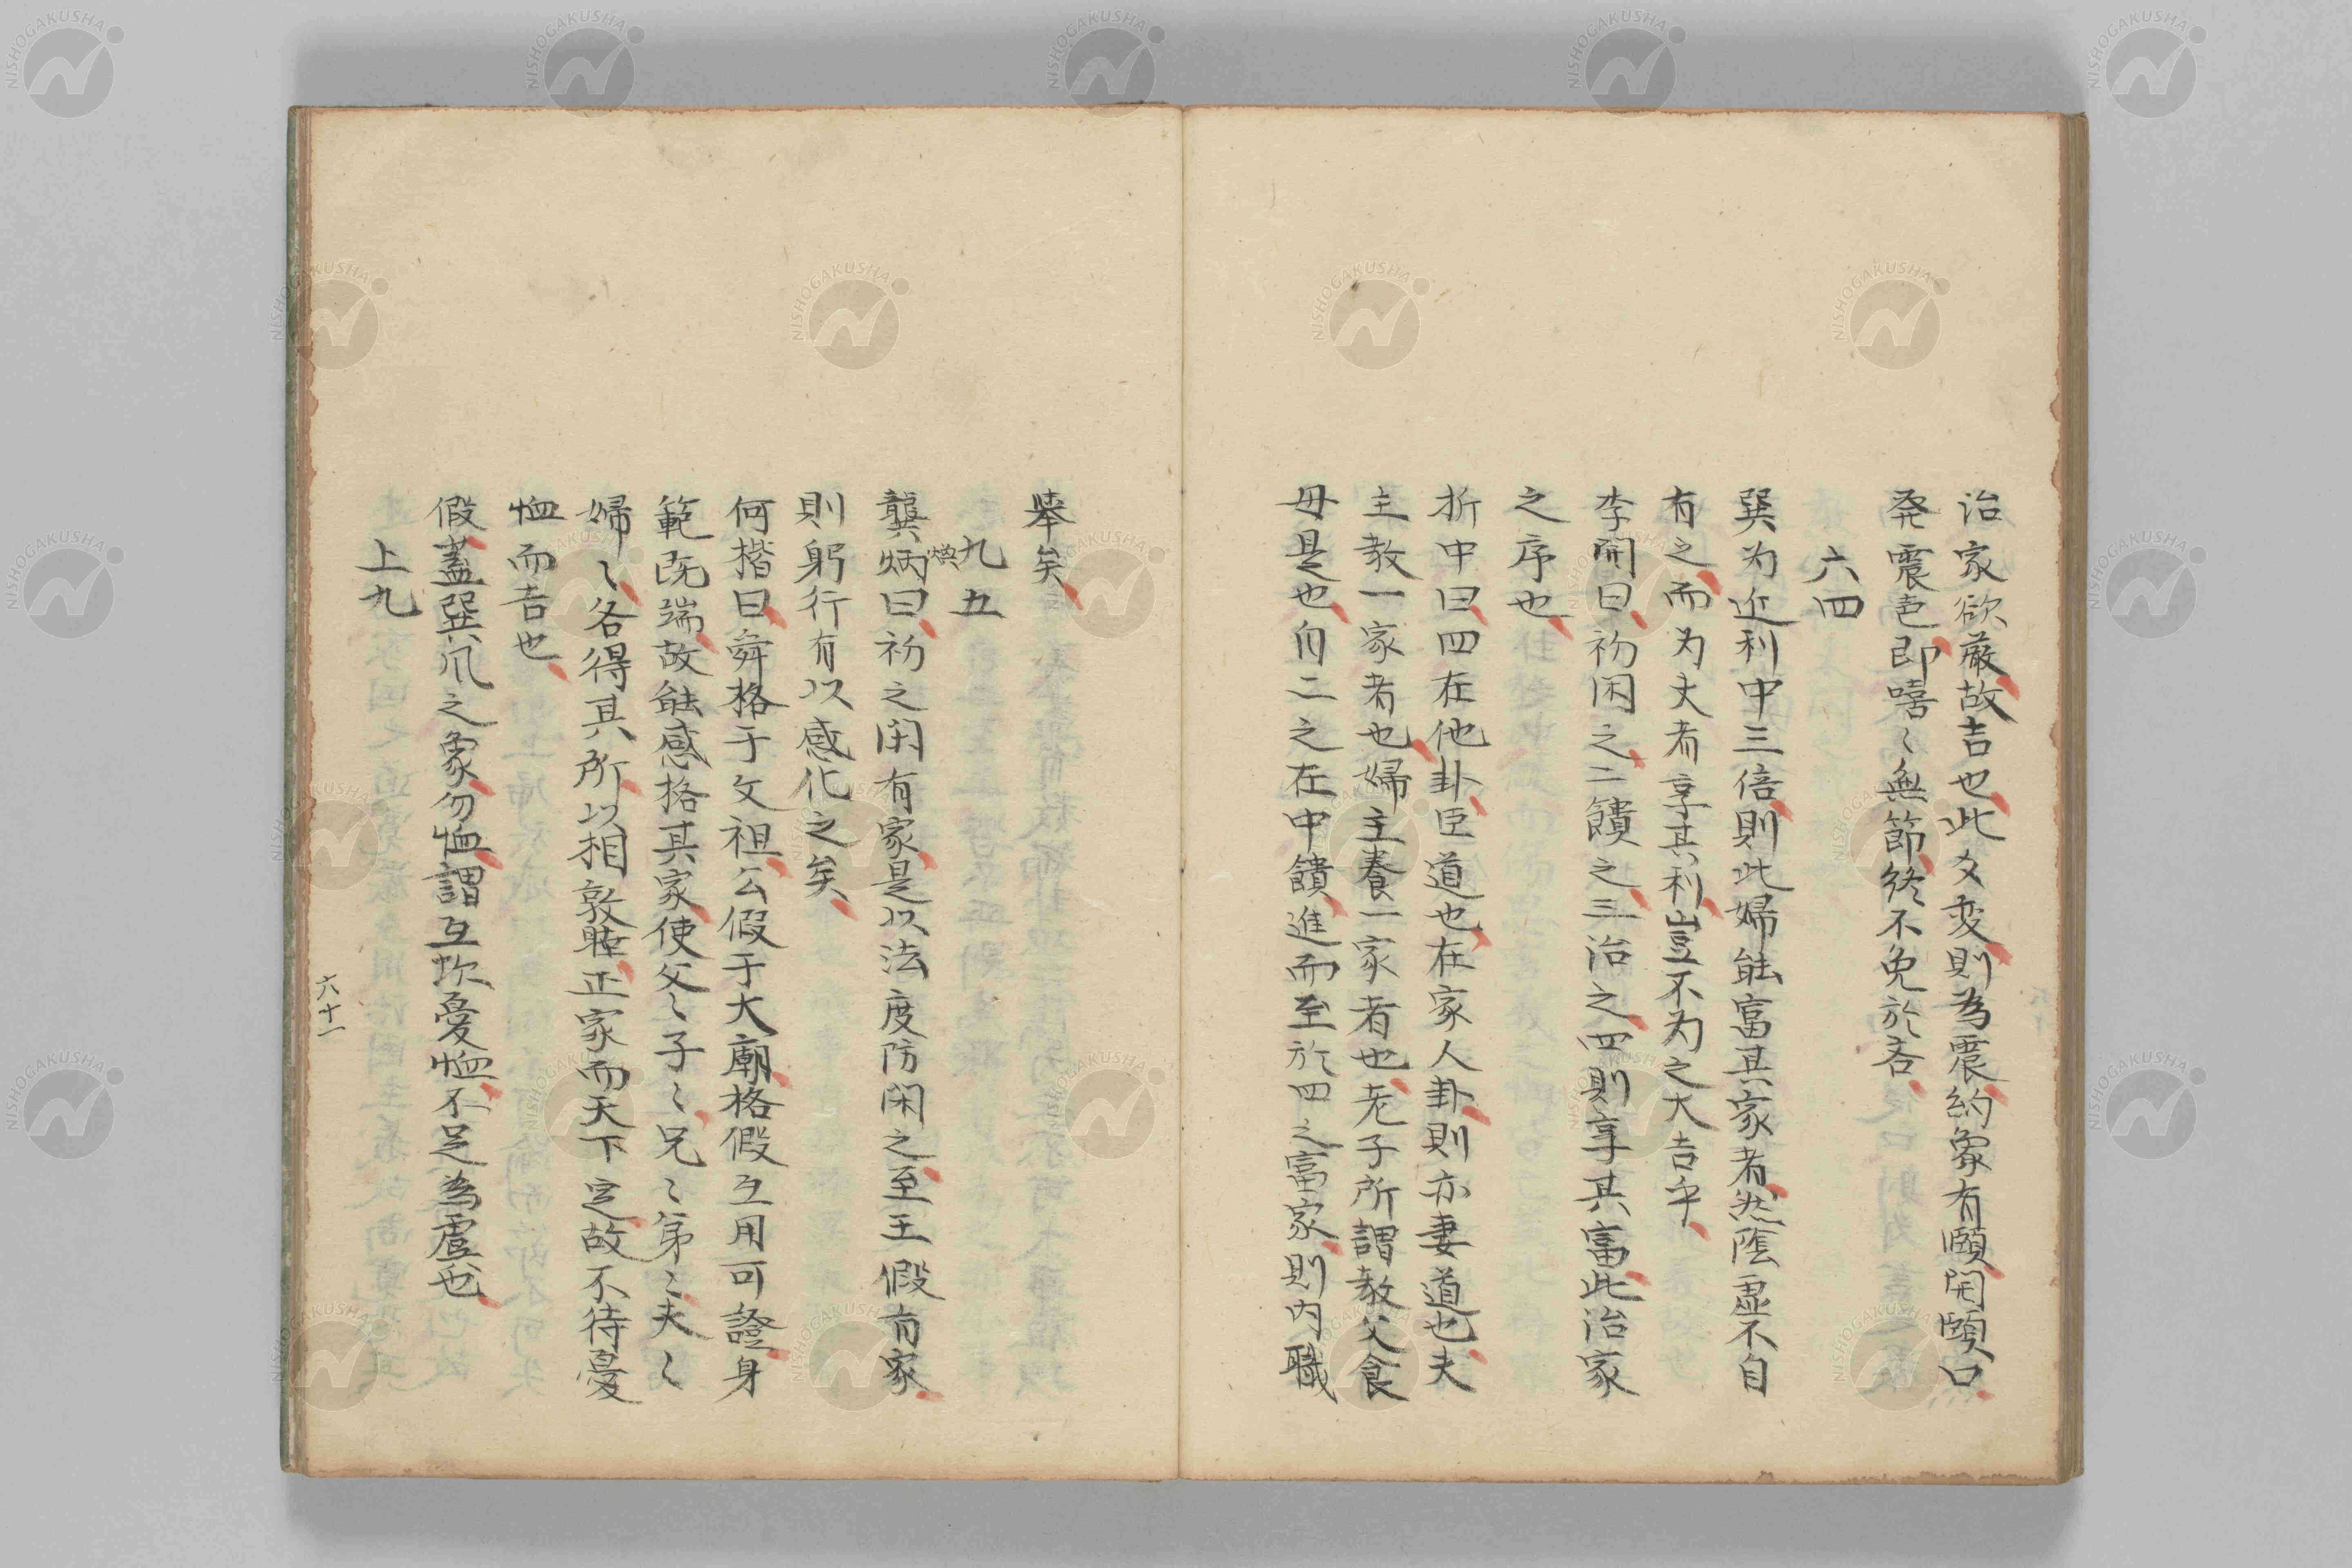 治家欲厳故吉也此爻変則為震約象有頤開頤口
発震邑即嘻〻無節終不免於吝
六四
巽为近利中三倍則此婦能富其家者然陰虚不自
有之而为丈者享其利豈不为之大吉乎
李開曰初閑之二饋之三治之四則享其富此治家
之序也
折中曰四在他卦臣道也在家人卦則亦妻道也夫
主教一家者也婦主養一家者也老子所謂教父食
母是也自二之在中饋進而至於四之富家則内職
挙矣
九五
龔炳曰初之閑有家是以法度防閑之至王假有家
煥
則躬行有以感化之矣
何楷曰舜格于文祖公假于大廟格假互用可證身
範既端故能感格其家使父〻子〻兄〻弟〻夫〻
婦〻各得其所以相敦睦正家而天下定故不待憂
恤而吉也
假蓋巽爪之象勿恤謂互坎憂恤不足為慮也
上九
六十一
NISHOGAKUSHA